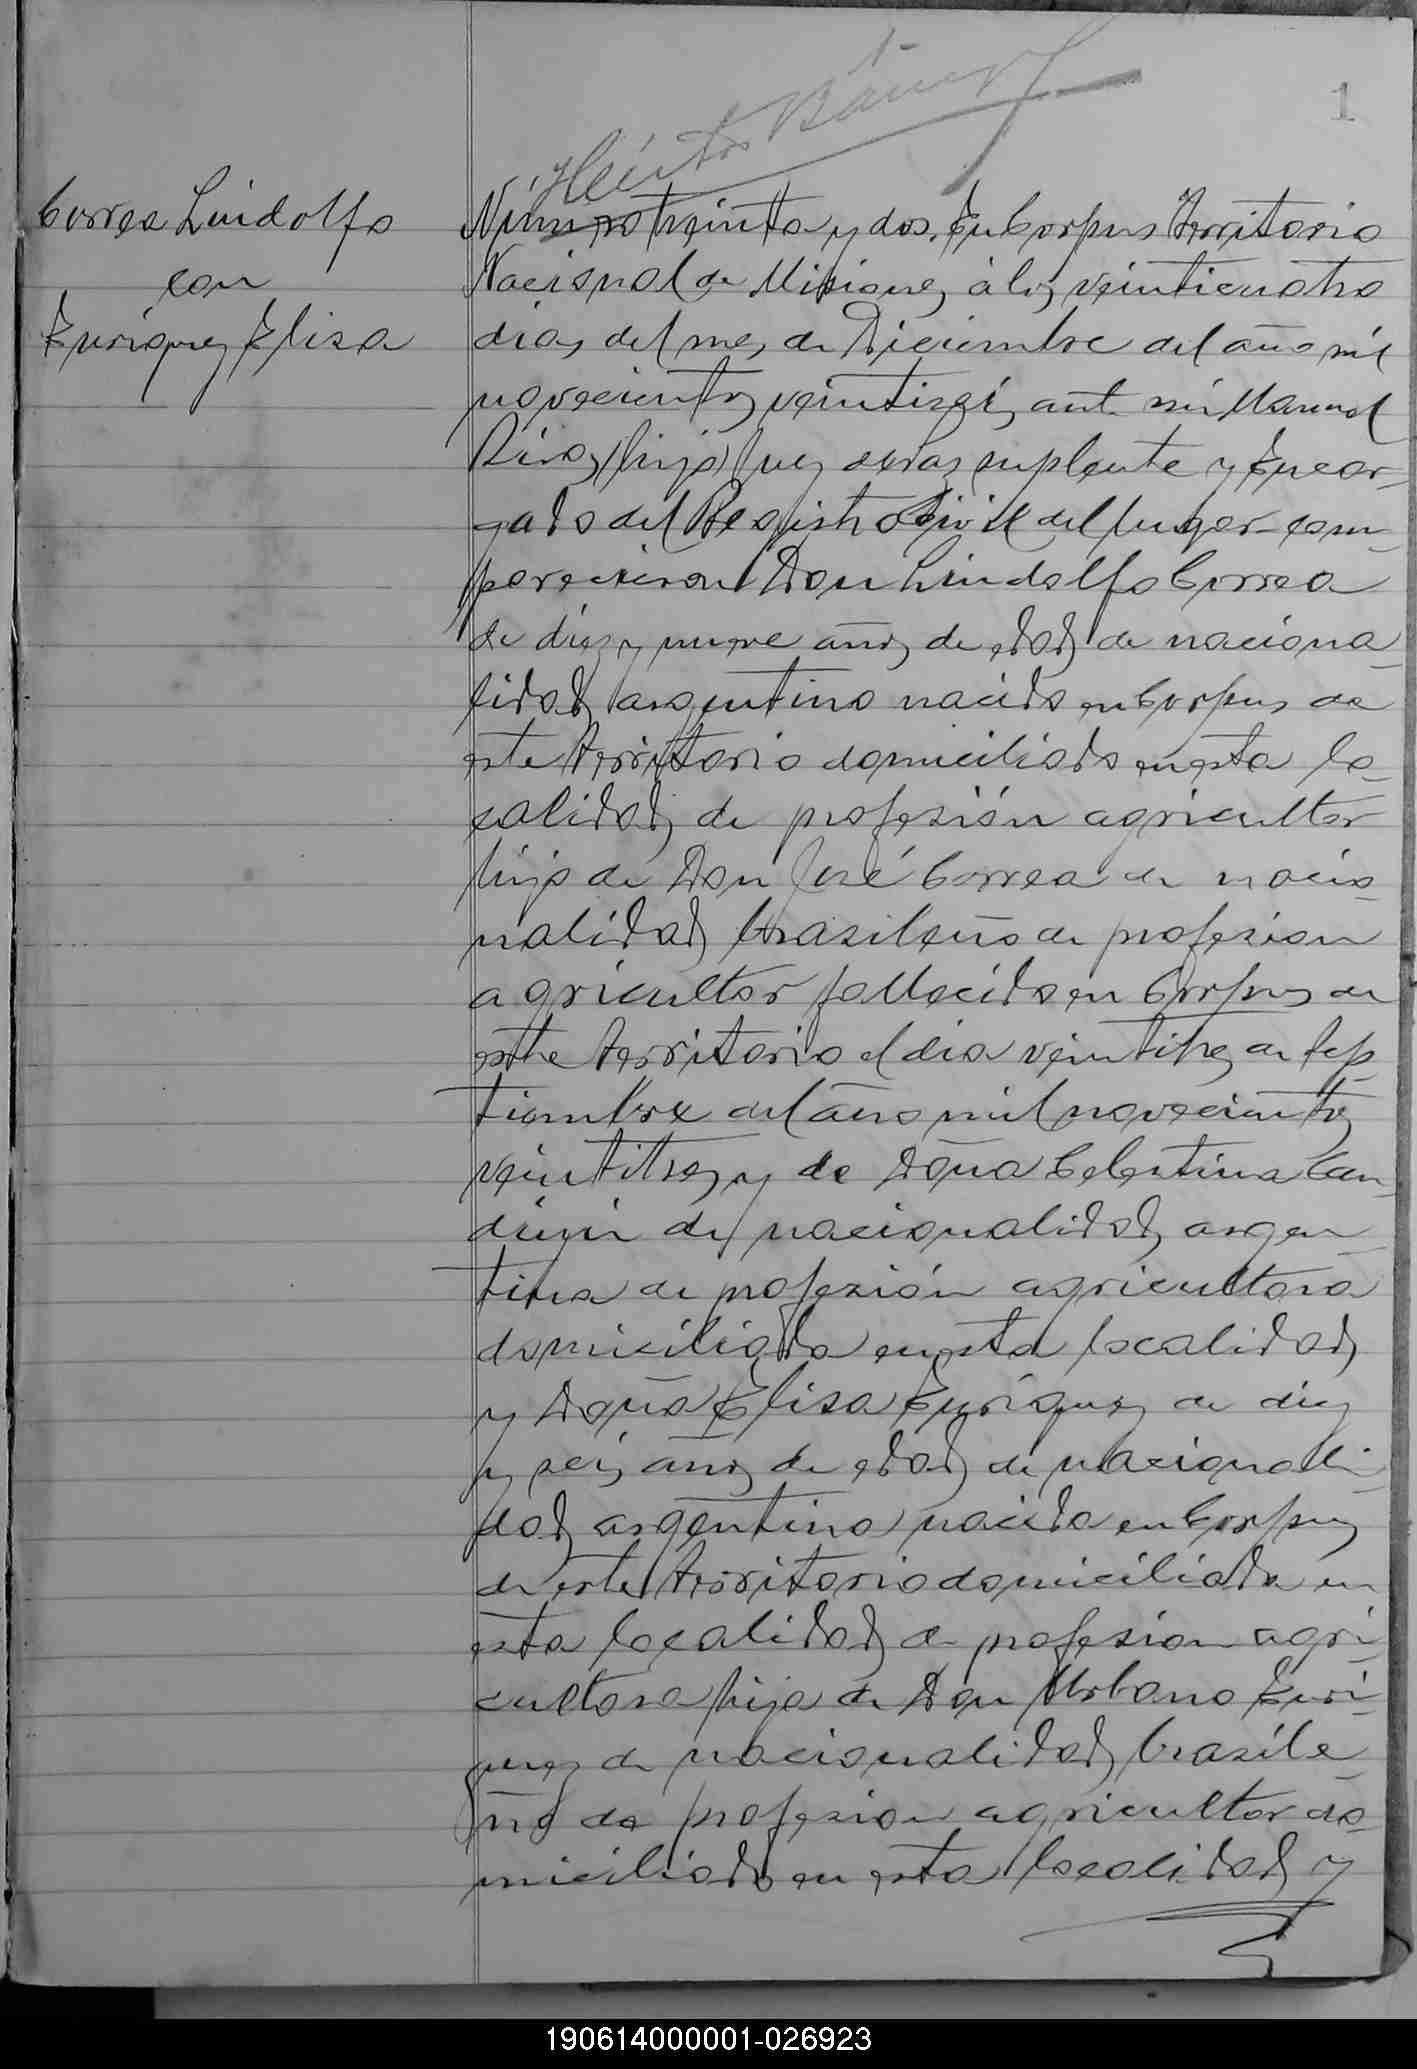 1
Correa Lindolfo
con
Enriquez Elisa
Número treinta y dos. En Corpus Territorio
Nacional de Misiones, á los veinticuatro
dias del mes de Diciembre del año mil
novecientos veintiseis, ante mi Manuel
(hijo) Juez de Paz suplente y Encar-
gado del Registro Civil del lugar com-
parecieron Don Lindolfo Correa
de diez y nueve años de edad de naciona-
lidad argentino nacido en Corpus de
este territorio domiciliado en esta lo-
calidad de profesión agricultor
hijo de Don José Correa de nacio-
nalidad brasileño de profesion
agricultor fallecido en Corpus de
este territorio el dia veintitres de sep-
tiembre del año mil novecientos
veintitres y de Doña Celestina
de nacionalidad argen-
tina de profesión agricultora
domiciliada en esta localidad
y Doña Elisa Enriquez de diez
y seis años de edad de nacionali-
dad argentina nacida en Corpus
de este territorio domiciliada en
esta localidad de profesion agri-
cultora hija de Don Urbano Enri-
quez de nacionalidad brasile-
ño de profesion agricultor do-
miciliado en esta localidad y
190614000001-026923